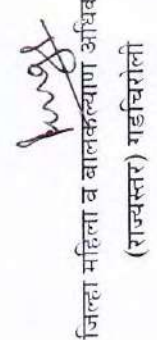 जिल्हा महिला व बालकल्याण
(राज्यस्तर) गडचिरोली